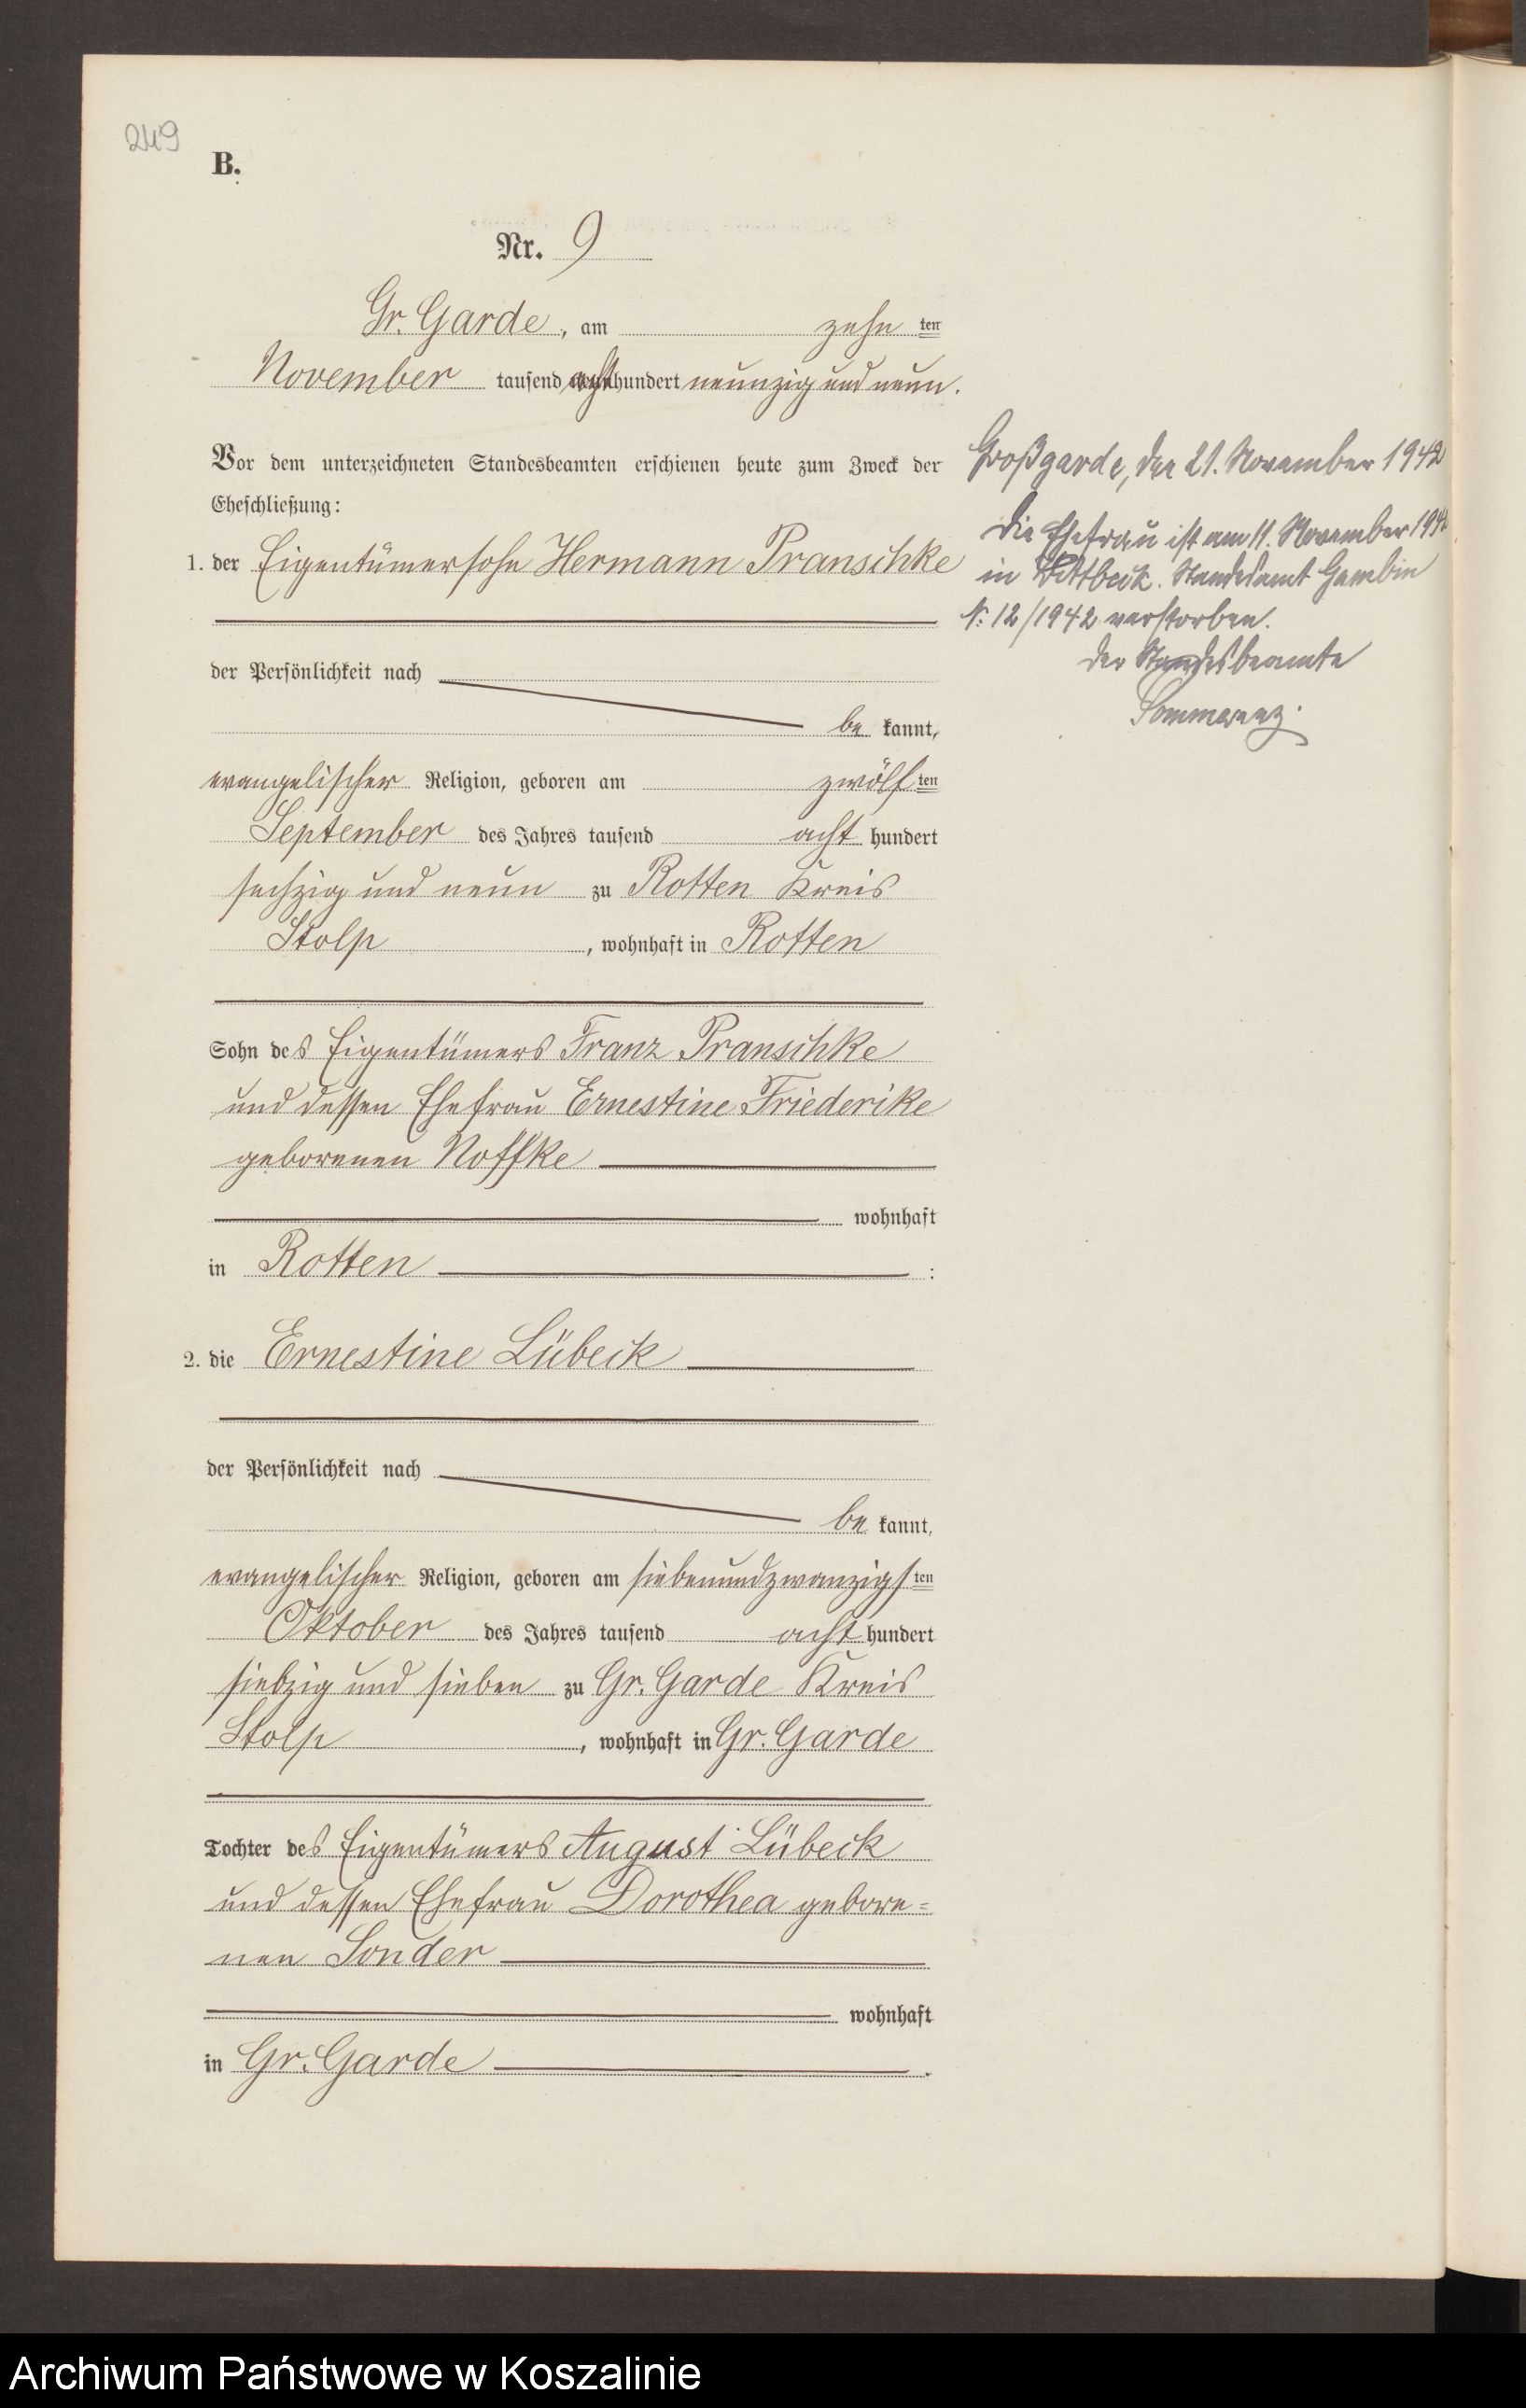 249
B.
Nr. 9
Gr. Garde, am zehn ten
November tausend acht hundert neunzig und neun.
Vor dem unterzeichneten Standesbeamten erschienen heute zum Zweck der
Eheschließung:
1. der Eigentümersohn Hermann Pranschke
der Persönlichkeit nach
be kannt,
evangelischer Religion, geboren am zwölf ten
September des Jahres tausend acht hundert
sechzig und neun zu Rotten Kreis
Stolp, wohnhaft in Rotten
Sohn des Eigentümers Franz Pranschke
und dessen Ehefrau Ernestine Friederike
geborenen Noffke
wohnhaft
in Rotten :
2. die Ernestine Lübeck
der Persönlichkeit nach
be kannt,
evangelischer Religion, geboren am siebenundzwanzigsten
Oktober des Jahres tausend acht hundert
siebzig und sieben zu Gr. Garde Kreis
Stolp, wohnhaft in Gr. Garde
Tochter des Eigentümers August Lübeck
und dessen Ehefrau Dorothea gebore=
nen Sonder
wohnhaft
in Gr. Garde .
Großgarde, den 21. November 1942
Die Ehefrau ist am 11. November 1942
in Wittbeck. Standesamt Gambin
N: 12/1942 verstorben.
Der Standesbeamte
Archiwum Państwowe w Koszalinie